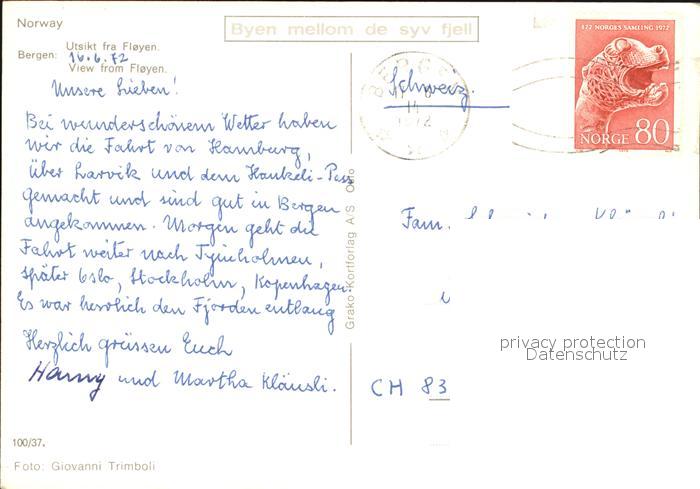 Norway
Byen mellom de syv fjell
872 NORGES SAMLING 1972
NORGE 80
Utsikt fra Fløyen.
Bergen: 16.6.72
View from Fløyen.
Unsere Lieben!
Bei wunderschönem Wetter haben
wir die Fahrt von Hamburg,
über Larvik und dem Haukeli-Pass
gemacht und sind gut in Bergen
angekommen. Morgen geht die
Fahrt weiter nach Tyinholmen,
später Oslo, Stockholm, Kopenhagen.
Es war herrlich den Fjorden entlang
Herzlich grüssen Euch
Hanny und Martha Kläusli.
100/37.
Foto: Giovanni Trimboli
Grako Kortforlag A/S Oslo
BERGEN
1972
Schweiz.
Fam.
CH 83
privacy protection
Datenschutz